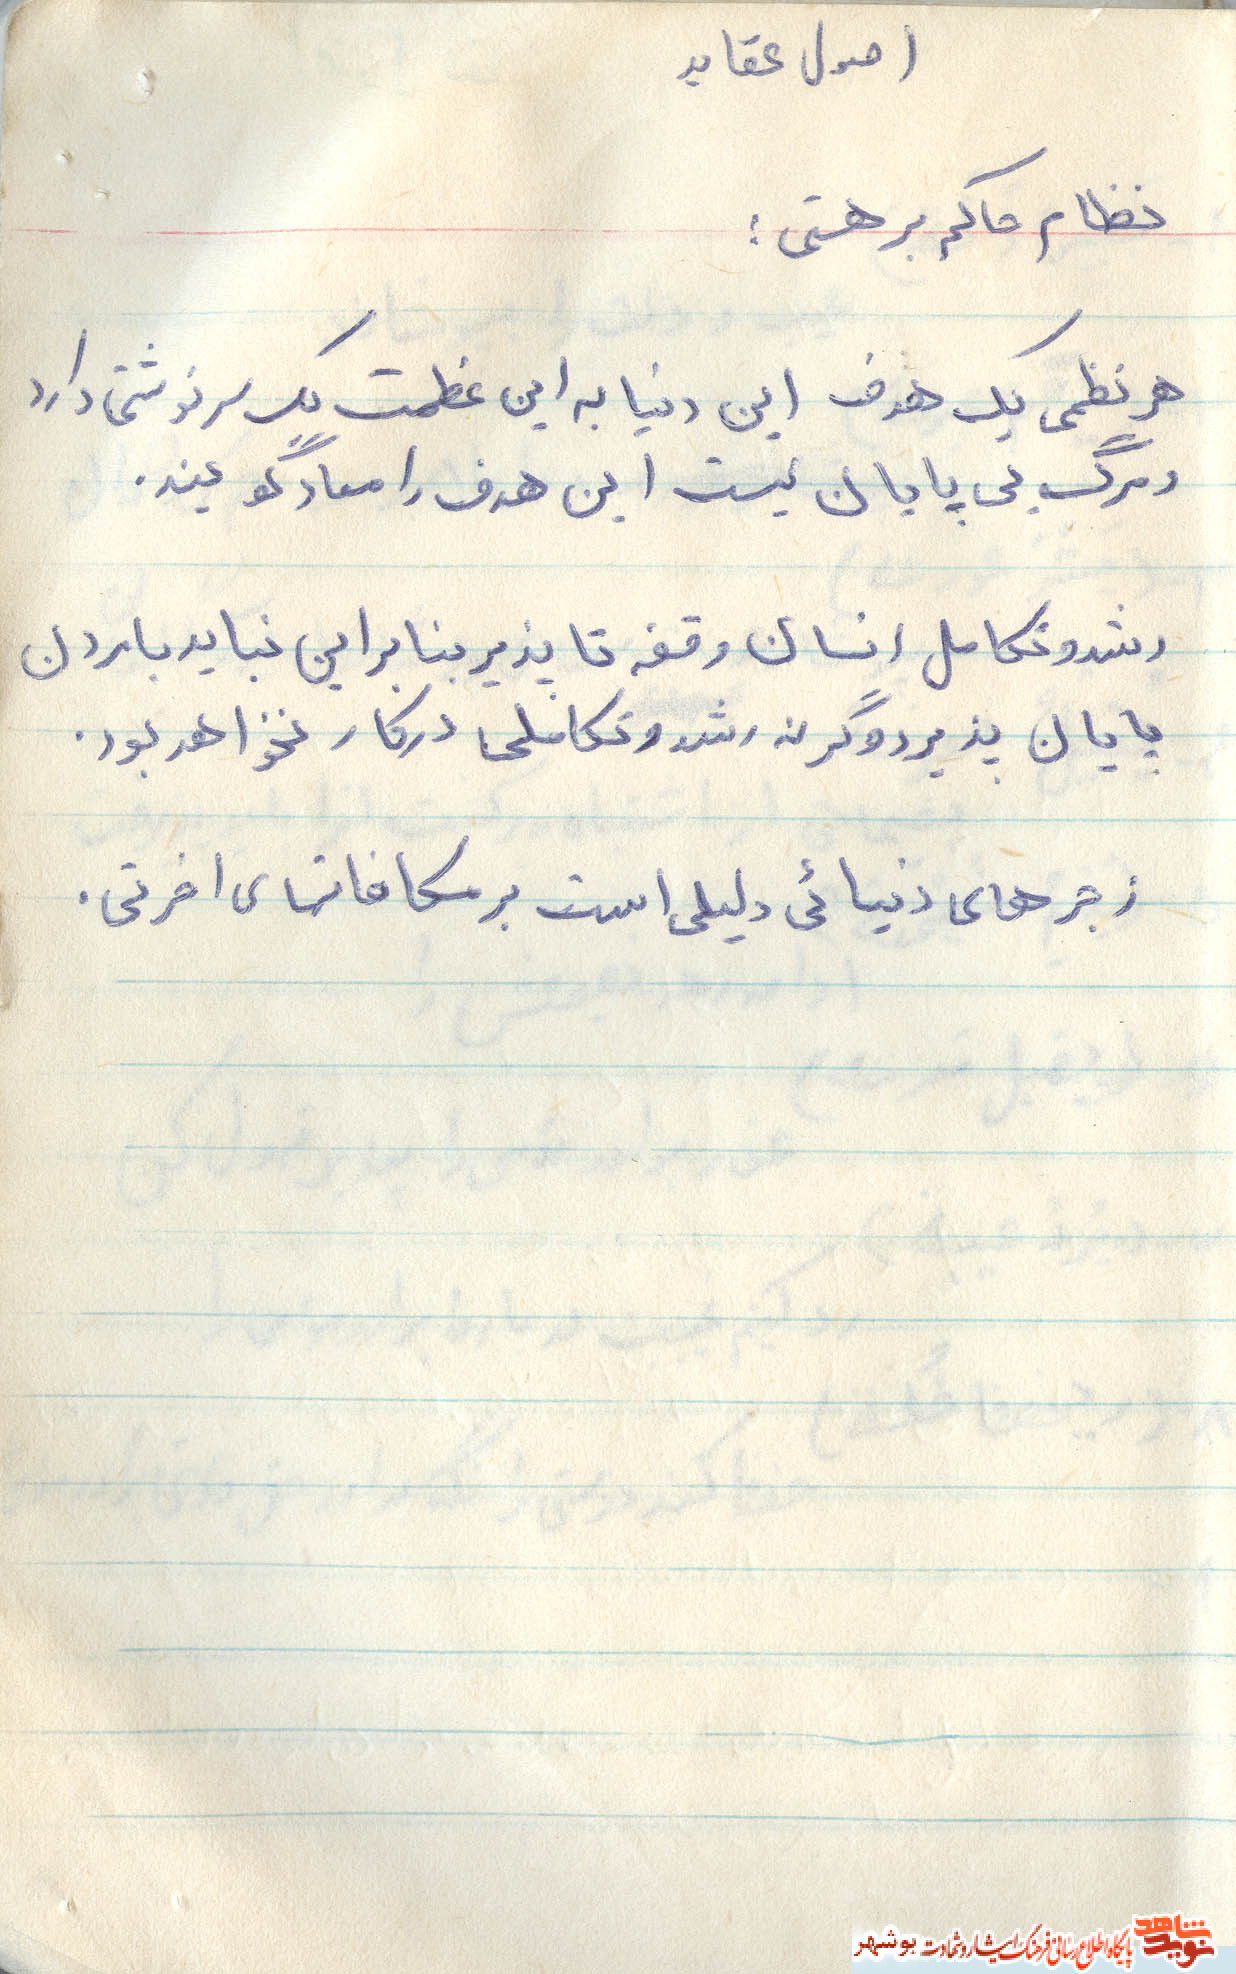 اصول عقاید
نظام حاکم بر هستی :
هر نظمی یک هدف این دنیا به این عظمت یک سرنوشتی دارد
و مرگ بی پایان نیست این هدف را معاد گویند.
رشد و تکامل انسان وقفه نا پذیر بنابر این نباید با مردن
پایان پذیرد وگرنه رشد و تکاملی در کار نخواهد بود.
زجر های دنیائی دلیلی است بر مکافاتهای اخرتی.
نوید شاهد
پایگاه اطلاع رسانی فرهنگ ایثار و شهادت بوشهر